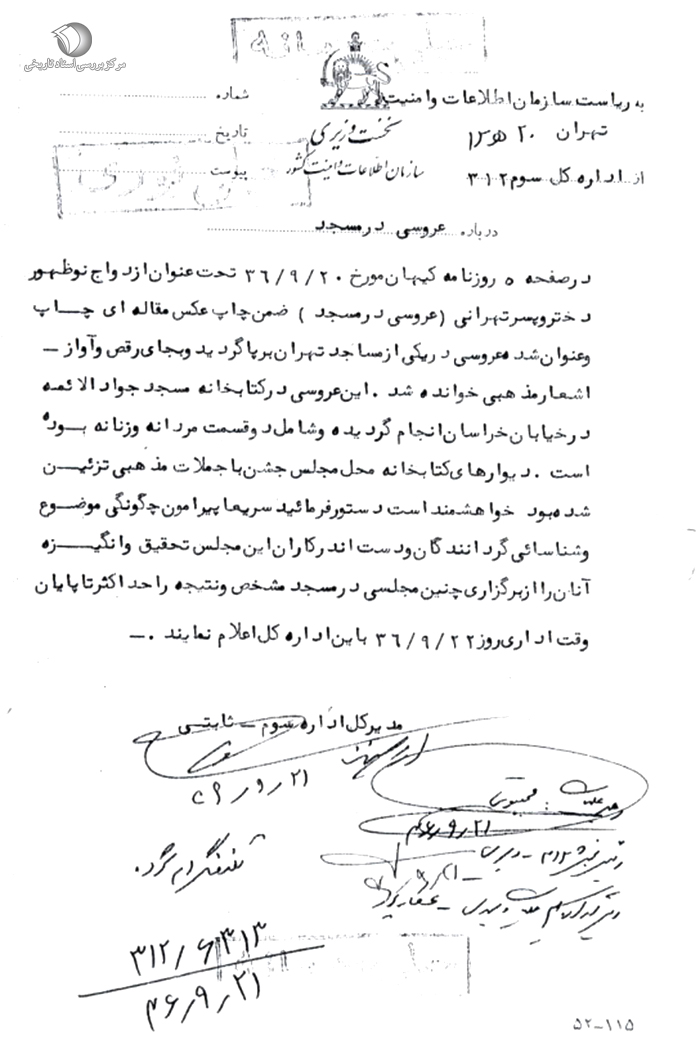 مرکز بررسی اسناد تاریخی
به ریاست سازمان اطلاعات و امنیت
شماره
تهران ۲۰ ه ۱۲
نخست وزیری
تاریخ
از اداره کل سوم ۳۱۲
سازمان اطلاعات و امنیت کشور
پیوست
درباره عروسی در مسجد
در صفحه ۵ روزنامه کیهان مورخ ۳۶/۹/۲۰ تحت عنوان ازدواج نوظهور
دختر و پسر تهرانی (عروسی در مسجد) ضمن چاپ عکس مقاله ای چاپ
و عنوان شده عروسی در یکی از مساجد تهران برپا گردید و بجای رقص و آواز ـ
اشعار مذهبی خوانده شد . این عروسی در کتابخانه مسجد جواد الائمه
در خیابان خراسان انجام گردیده و شامل دو قسمت مردانه و زنانه بوده
است . دیوارهای کتابخانه محل مجلس جشن با جملات مذهبی تزئین
شده بود خواهشمند است دستور فرمائید سریعا پیرامون چگونگی موضوع
و شناسائی گردانندگان و دست اندرکاران این مجلس تحقیق و انگیزه
آنان را از برگزاری چنین مجلسی در مسجد مشخص و نتیجه را حداکثر تا پایان
وقت اداری روز ۳۶/۹/۲۲ باین اداره کل اعلام نمایند .ـ
مدیر کل اداره سوم ـ ثابتی
۲۱/۹/
۴۶/۹/۲۱
تلفنگرام گردد.
۳۱۲/۶۳۱۳
۴۶/۹/۲۱
۵۲-۱۱۵